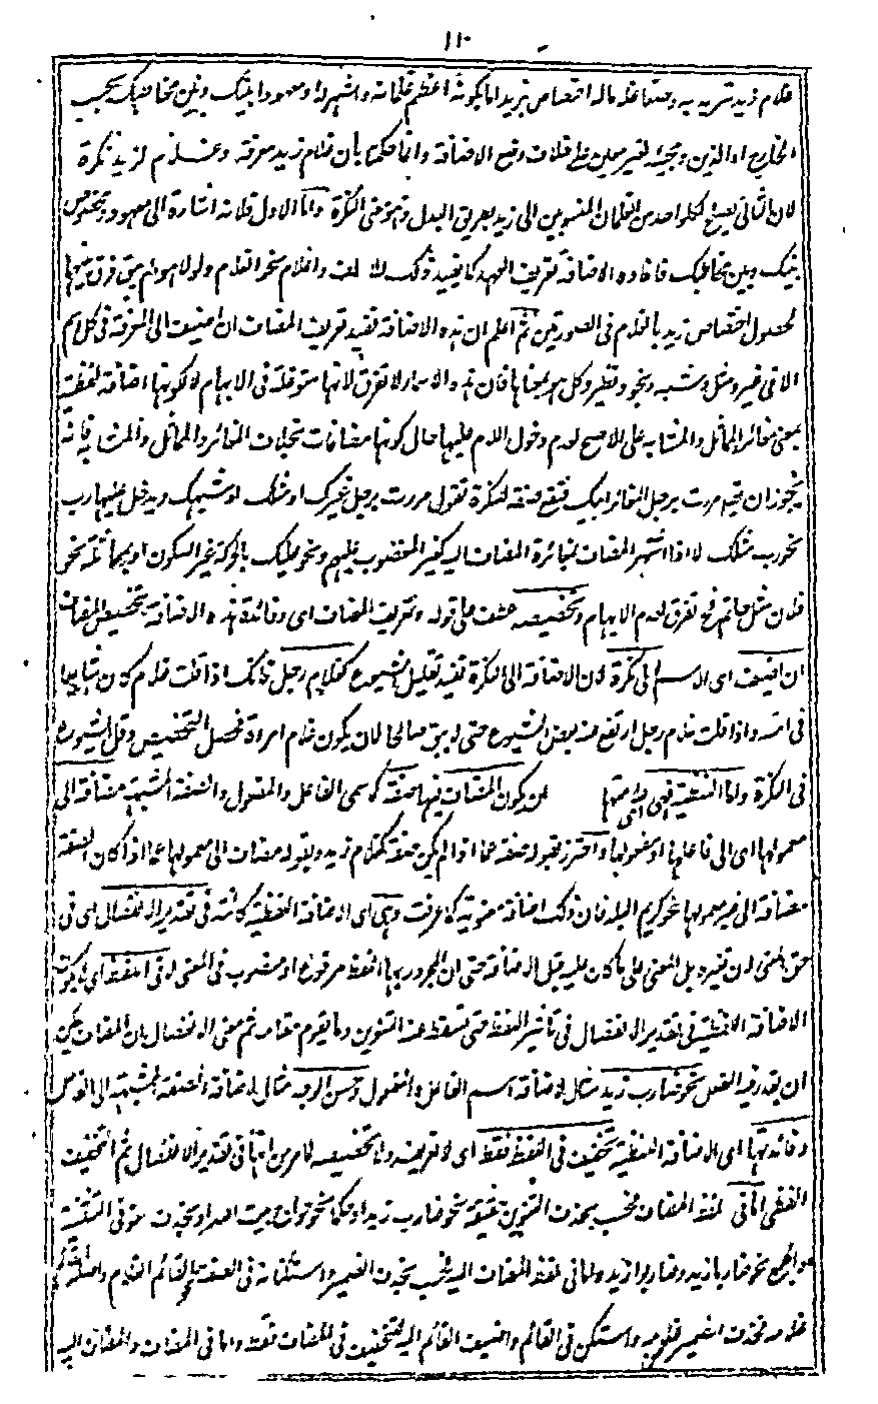 ١١٠
غلام زيد تريد به وصفا غلاما له اختصاص بزيد اما بكونه اعظم غلمانه واشهر او معهودا بينك وبين مخاطبك بحسب
الخارج او الذهن ومجيئه لغير معين على خلاف وضع الاضافة وانما حكمنا بان غلام زيد معرفة وغلام لزيد نكرة
لان الثانى يصلح لكل واحد من الغلمان المنسوبين الى زيد بطريق البدل وهو معنى النكرة واما الاول فلانه اشارة الى معهود ومخصوص
بينك وبين مخاطبك فافاده الاضافة تعريف العهد كما يفيد ذلك واغلام نحو الغلام ولولا هو لم يبق فرق بينهما
لحصول اختصاص زيد بالغلام فى الصورتين ثم اعلم ان هذه الاضافة تفيد تعريف المضاف ان اضيف الى المعرفة فى كل اسم
الا فى غير ومثل وشبه ونحو ونظير وكل هو بمعناها فان هذه الاسماء لا تعرف لانها متوغلة فى الابهام لا لكونها اضافة لفظية
بمعنى مغائر المماثل والمشابه على الاصح لعدم دخول اللام عليها حال كونها مضافات بخلاف المغائر والمماثل والمشابه فانه
يجوز ان تقول مررت برجل المغائر اليك فتقع صفة لنكرة تقول مررت برجل غيرك او مثلك او شبهك ويدخل عليها رب
نحو رب مثلك لا اذا اشتهر المضاف بمغائرة المضاف اليه كغير المغضوب عليهم ونحو عليك بالحركة غير السكون او بمماثلة نحو
فلان مثل حاتم فح تعرف لعدم الابهام وتخصيصه عطف على قوله وتعريف المضاف اى وفائدة هذه الاضافة تخصيص المضاف
ان اضيف اى الاسم الى نكرة لان الاضافة الى النكرة تفيد تقليل الشيوع كغلام رجل فانك اذا قلت غلام كان شايعا
فى امته واذا قلت غلام رجل ارتفع عنه بعض الشيوع حتى لم يبق صالحا لان يكون غلام امراة فحصل التخصيص وقل الشيوع
فى النكرة واما اللفظية فهى ان يكون المضاف فيها صفة كاسمى الفاعل والمفعول والصفة المشبهة مضافة الى
معمولها اى الى فاعلها او مفعولها واحترز بقوله صفة عما اذا لم يكن صفة كغلام زيد وبقوله مضاف الى معمولها عما اذا كان الصفة
مضافة الى غير معمولها نحو كريم البلد فان ذلك اضافة معنوية كما عرفت وهى اى الاضافة اللفظية كائنة فى تقدير الانفصال اى فى
حق المعنى لان تغيره بل المعنى على ما كان عليه قبل الاضافة حتى ان المجرور بها لفظا مرفوع او منصوب فى المعنى لا فى اللفظ اى لا يكون
الاضافة اللفظية فى تقدير الانفصال فى تأثير اللفظ حتى تسقط عنه التنوين وما يقوم مقامه ثم معنى الانفصال بان المضاف يمكن
ان يقدر فيه الفصل نحو ضارب زيد مثال لاضافة اسم الفاعل والمفعول وحسن الوجه مثال لاضافة الصفة المشبهة الى الفاعل
وفائدتها اى الاضافة اللفظية تخفيف فى اللفظ فقط اى لا تعريف ولا تخصيص لما مر من انها فى تقدير الانفصال ثم التخفيف
اللفظى اما فى لفظ المضاف فحسب بحذف التنوين حقيقة نحو ضارب زيد او حكما نحو حواج بيت الله او بحذف نونى التثنية
والجمع نحو ضاربا زيد وضاربو زيد واما فى لفظ المضاف اليه فحسب بحذف الضمير واستكنانه فى الصفة كالقائم الغلام واصله القائم
غلامه فحذف الضمير من غلامه واستكن فى القائم واضيف القائم اليه للتخفيف فى المضاف فقط واما فى المضاف والمضاف اليه